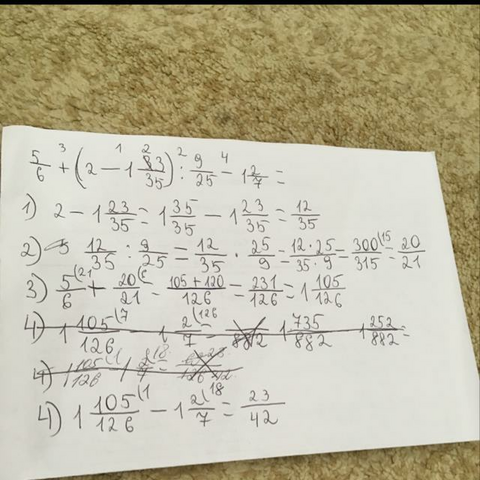 5/6 + (2 - 1 23/35) : 9/25 - 1 2/7 =
1) 2 - 1 23/35 = 1 35/35 - 1 23/35 = 12/35
2) 12/35 : 9/25 = 12/35 · 25/9 = 12 · 25/35 · 9 = 300(15/315 = 20/21
3) 5(21/6 + 20(6/21 = 105 + 120/126 = 231/126 = 1 105/126
4) 1 105(7/126 - 1 2(126/7 = 1 735/882 1 252/882 =
4) 1 105(1/126
4) 1 105(1/126 - 1 2(18/7 = 23/42